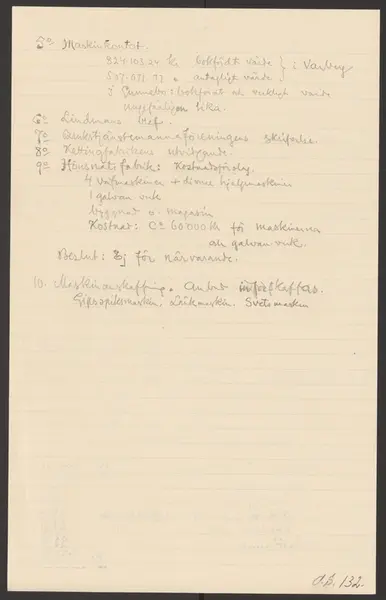 5º Maskinkontot.
824.103.24 kr bokfördt värde } i Varberg
537.071 77 " antagligt värde
i Gunnebo: bokförat och verkligt värde
ungefärligen lika.
6º Lindmans bref.
7º Bruks­tjänstemannaföreningens skrifvelse.
8º Kettingfabrikens utvidgande.
9º Hönsnätsfabrik: Kostnadsförslag.
4 Väfmaskiner + diverse hjelpmaskiner
1 galvan. verk
byggnad o. magasin
Kostnad: Cª 60000 Kr för maskinerna
och galvan. verk.
Beslut: Ej för närvarande.
10. Maskinanskaffning. Anbud införskaffas.
Gipsspikmaskin. Länkmaskin. Svetsmaskin
132.